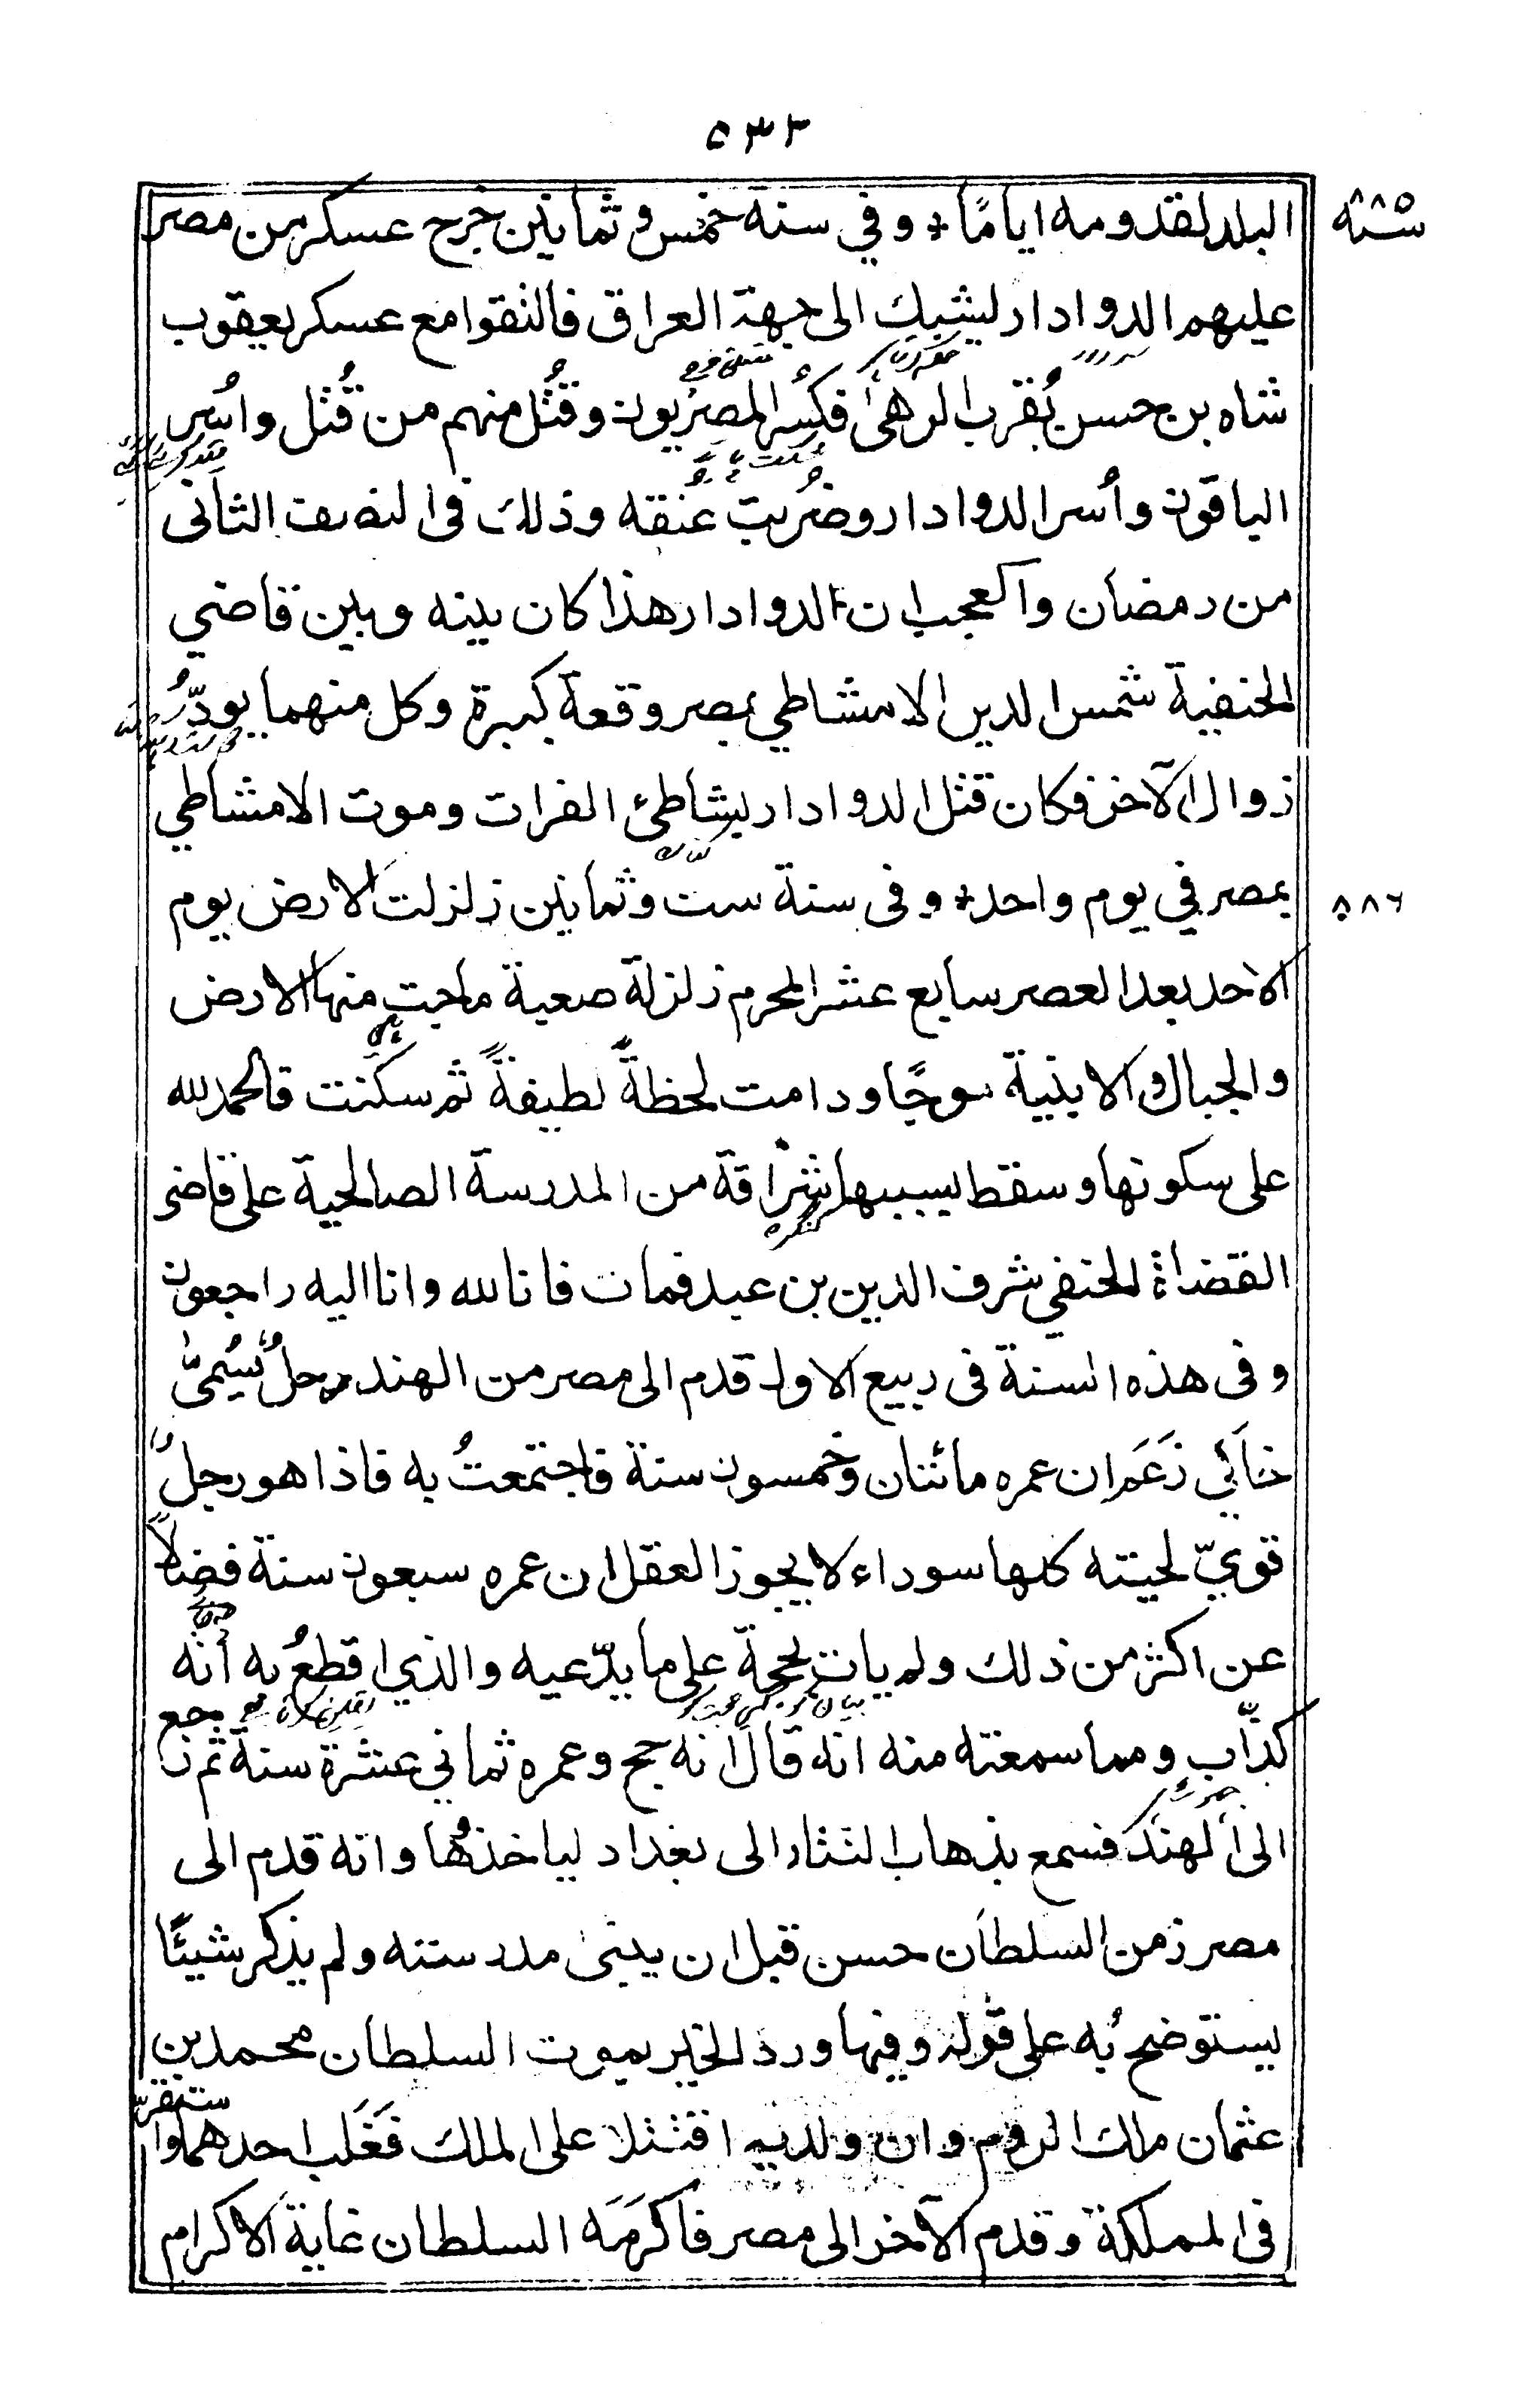 ٥٣٢
البلد لقدومه اياما * وفي سنة خمس وثمانين خرج عسكر من مصر
سنة ٨٨٥
عليهم الدوادار يشبك الى جهة العراق فالتقوا مع عسكر يعقوب
شاه بن حسن بُقرب الرهىٰ فكُسر المصريون وقُتل منهم من قُتل واُسر
الباقون وأُسر الدوادار وضُربت عُنقه وذلك فى النصف الثانى
من رمضان والعجب ان الدوادار هذا كان بينه وبين قاضي
الحنفية شمس الدين الامشاطي بمصر وقعة كبيرة وكل منهما يودّ
زوال الآخر فكان قتل الدوادار بشاطئ الفرات وموت الامشاطي
بمصر في يوم واحد * وفى سنة ست وثمانين زلزلت الارض يوم
٨٨٦
الاحد بعد العصر سابع عشر المحرم زلزلة صعبة ماجت منها الارض
والجبال والابنية موجًا ودامت لحظةً لطيفةً ثم سكنت فالحمد لله
على سكونها وسقط بسببها شرافة من المدرسة الصالحية على قاضى
كنگره
القضاة الحنفي شرف الدين بن عيد فمات فانا لله وانا اليه راجعون
وفى هذه السنة فى ربيع الاول قدم الى مصر من الهند رجلٌ يُسمىّٰ
خاَكي زَعَم ان عمره مائتان وخمسون سنة فاجتمعتُ به فاذا هو رجلٌ
قويّ لحيته كلها سوداء لا يجوز العقل ان عمره سبعون سنة فضلاً
عن اكثر من ذلك ولم يات بحجة على ما يدّعيه والذي اقطعُ به أنه
كذّاب ومما سمعته منه انه قال انه حج وعمره ثماني عشرة سنة ثم رجع
الى الهند فسمع بذهاب التتار الى بغداد لياخذُها وانه قدم الى
مصر زمن السلطان حسن قبل ان يبنى مدرسته ولم يذكر شيئًا
يستوضح به على قوله وفيها ورد الخبر بموت السلطان محمد بن
عثمان ملك الروم وان ولديه اقتتلا على الملك فَغَلَب احدهما واستقرّ
فى المملكة وقدم الآخر الى مصر فاكرَمَه السلطان غاية الاكرام